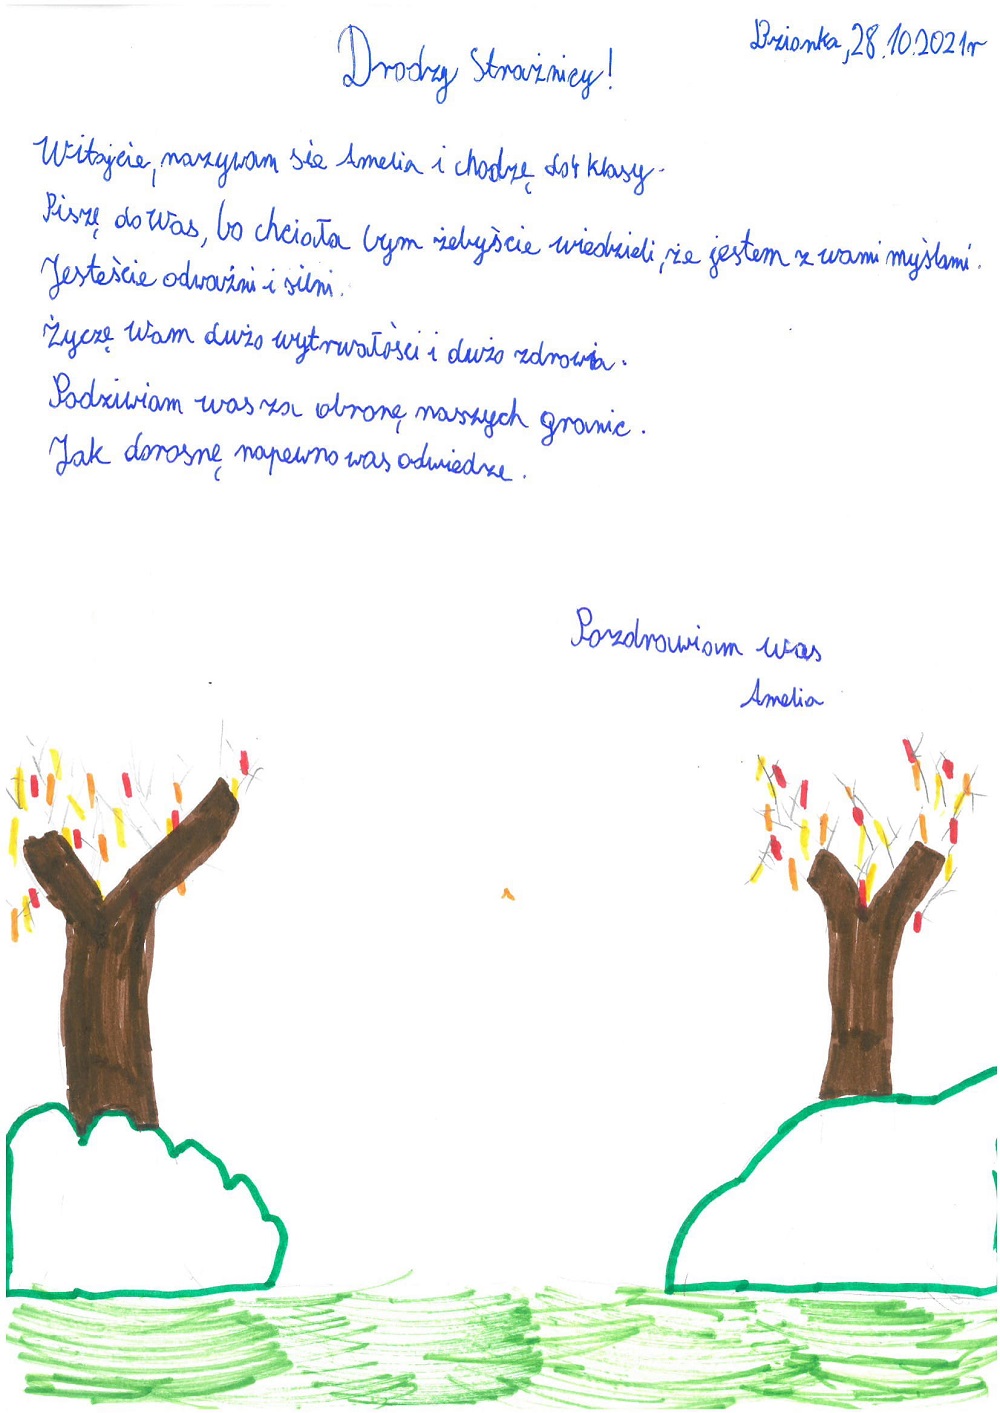 Dzionka, 28.10.2021r
Drodzy Strażnicy!
Witajcie, nazywam sie Amelia i chodzę do 4 klasy.
Piszę do Was, bo chciała bym żebyście wiedzieli, że jestem z wami myślami.
Jesteście odważni i silni.
Życzę Wam dużo wytrwałości i dużo zdrowia.
Podziwiam was za obronę naszych granic.
Jak dorosnę napewno was odwiedze.
Pozdrawiam was
Amelia